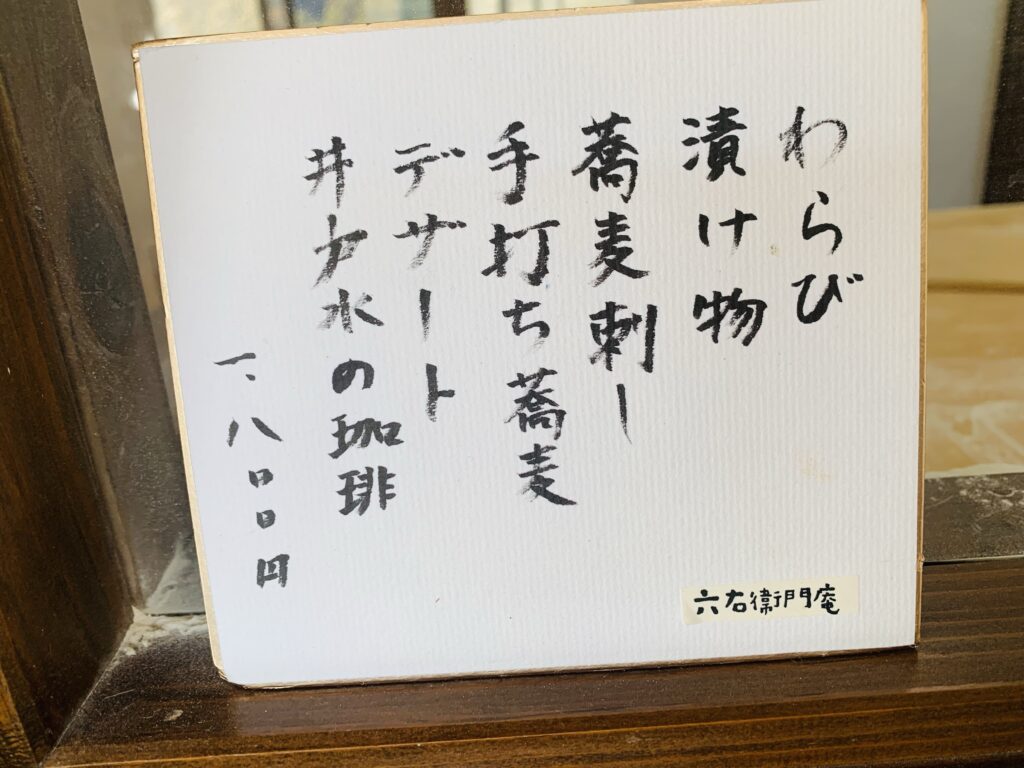 わらび
漬け物
蕎麦刺し
手打ち蕎麦
デザート
井戸水の珈琲
一、八〇〇円
六右衛門庵